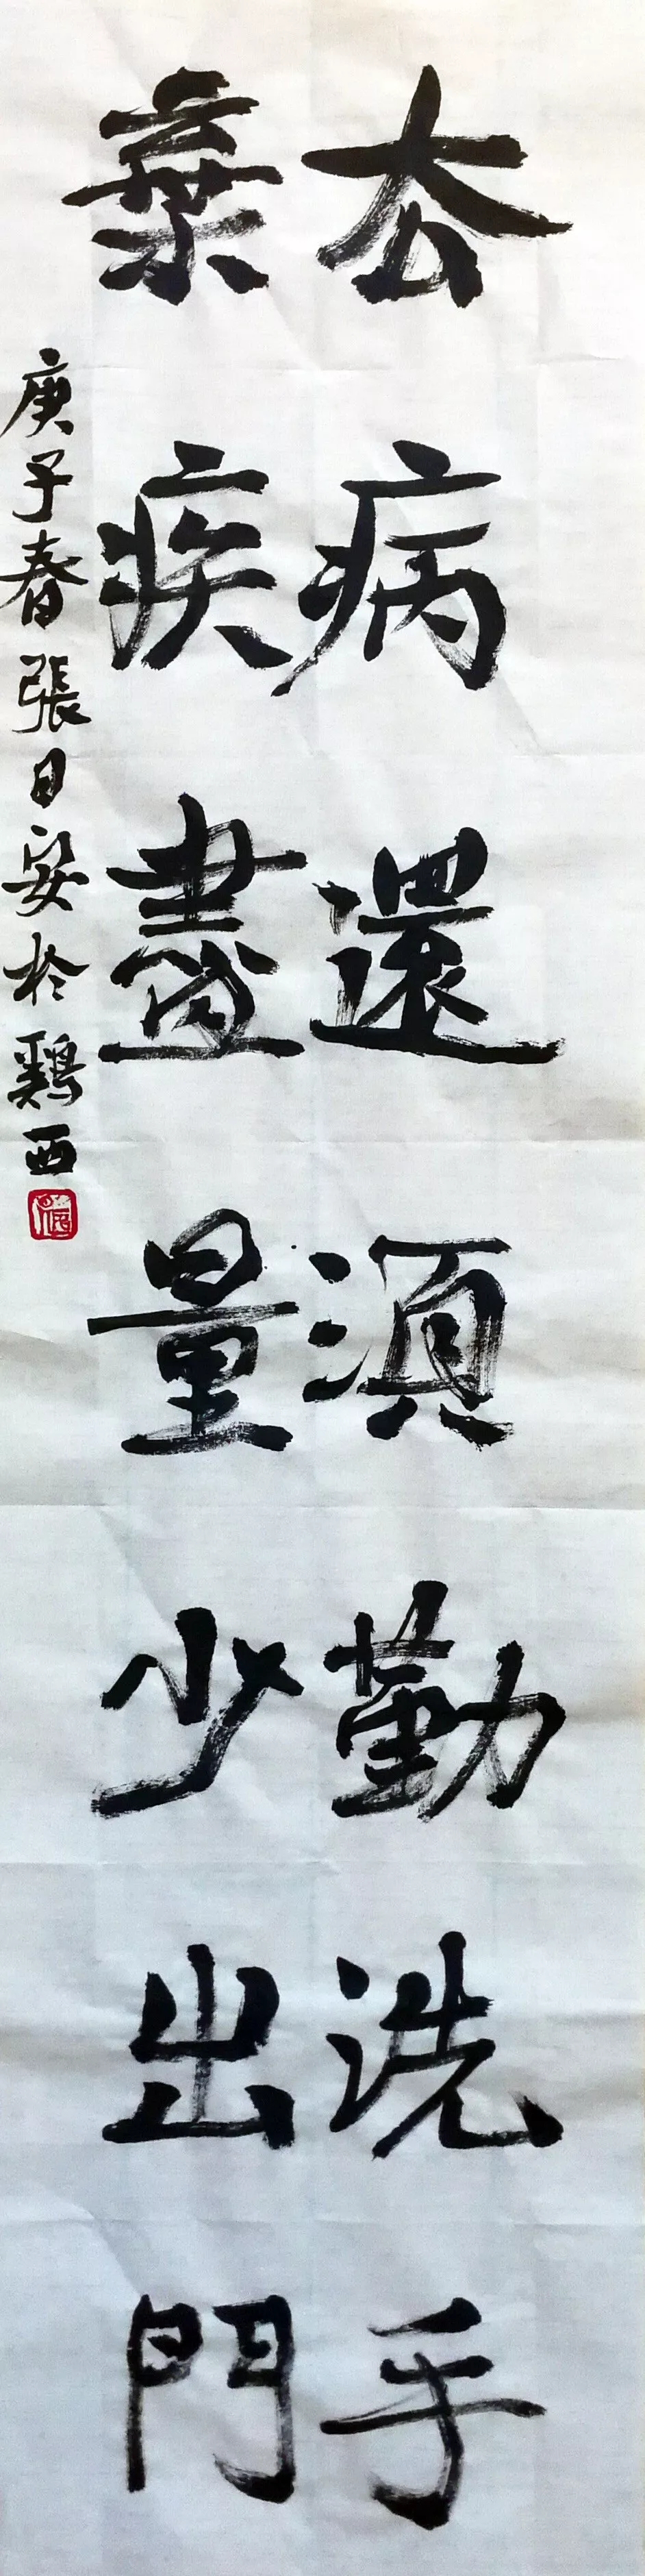 去病還須勤洗手
棄疾盡量少出門
庚子春張日安於鷄西